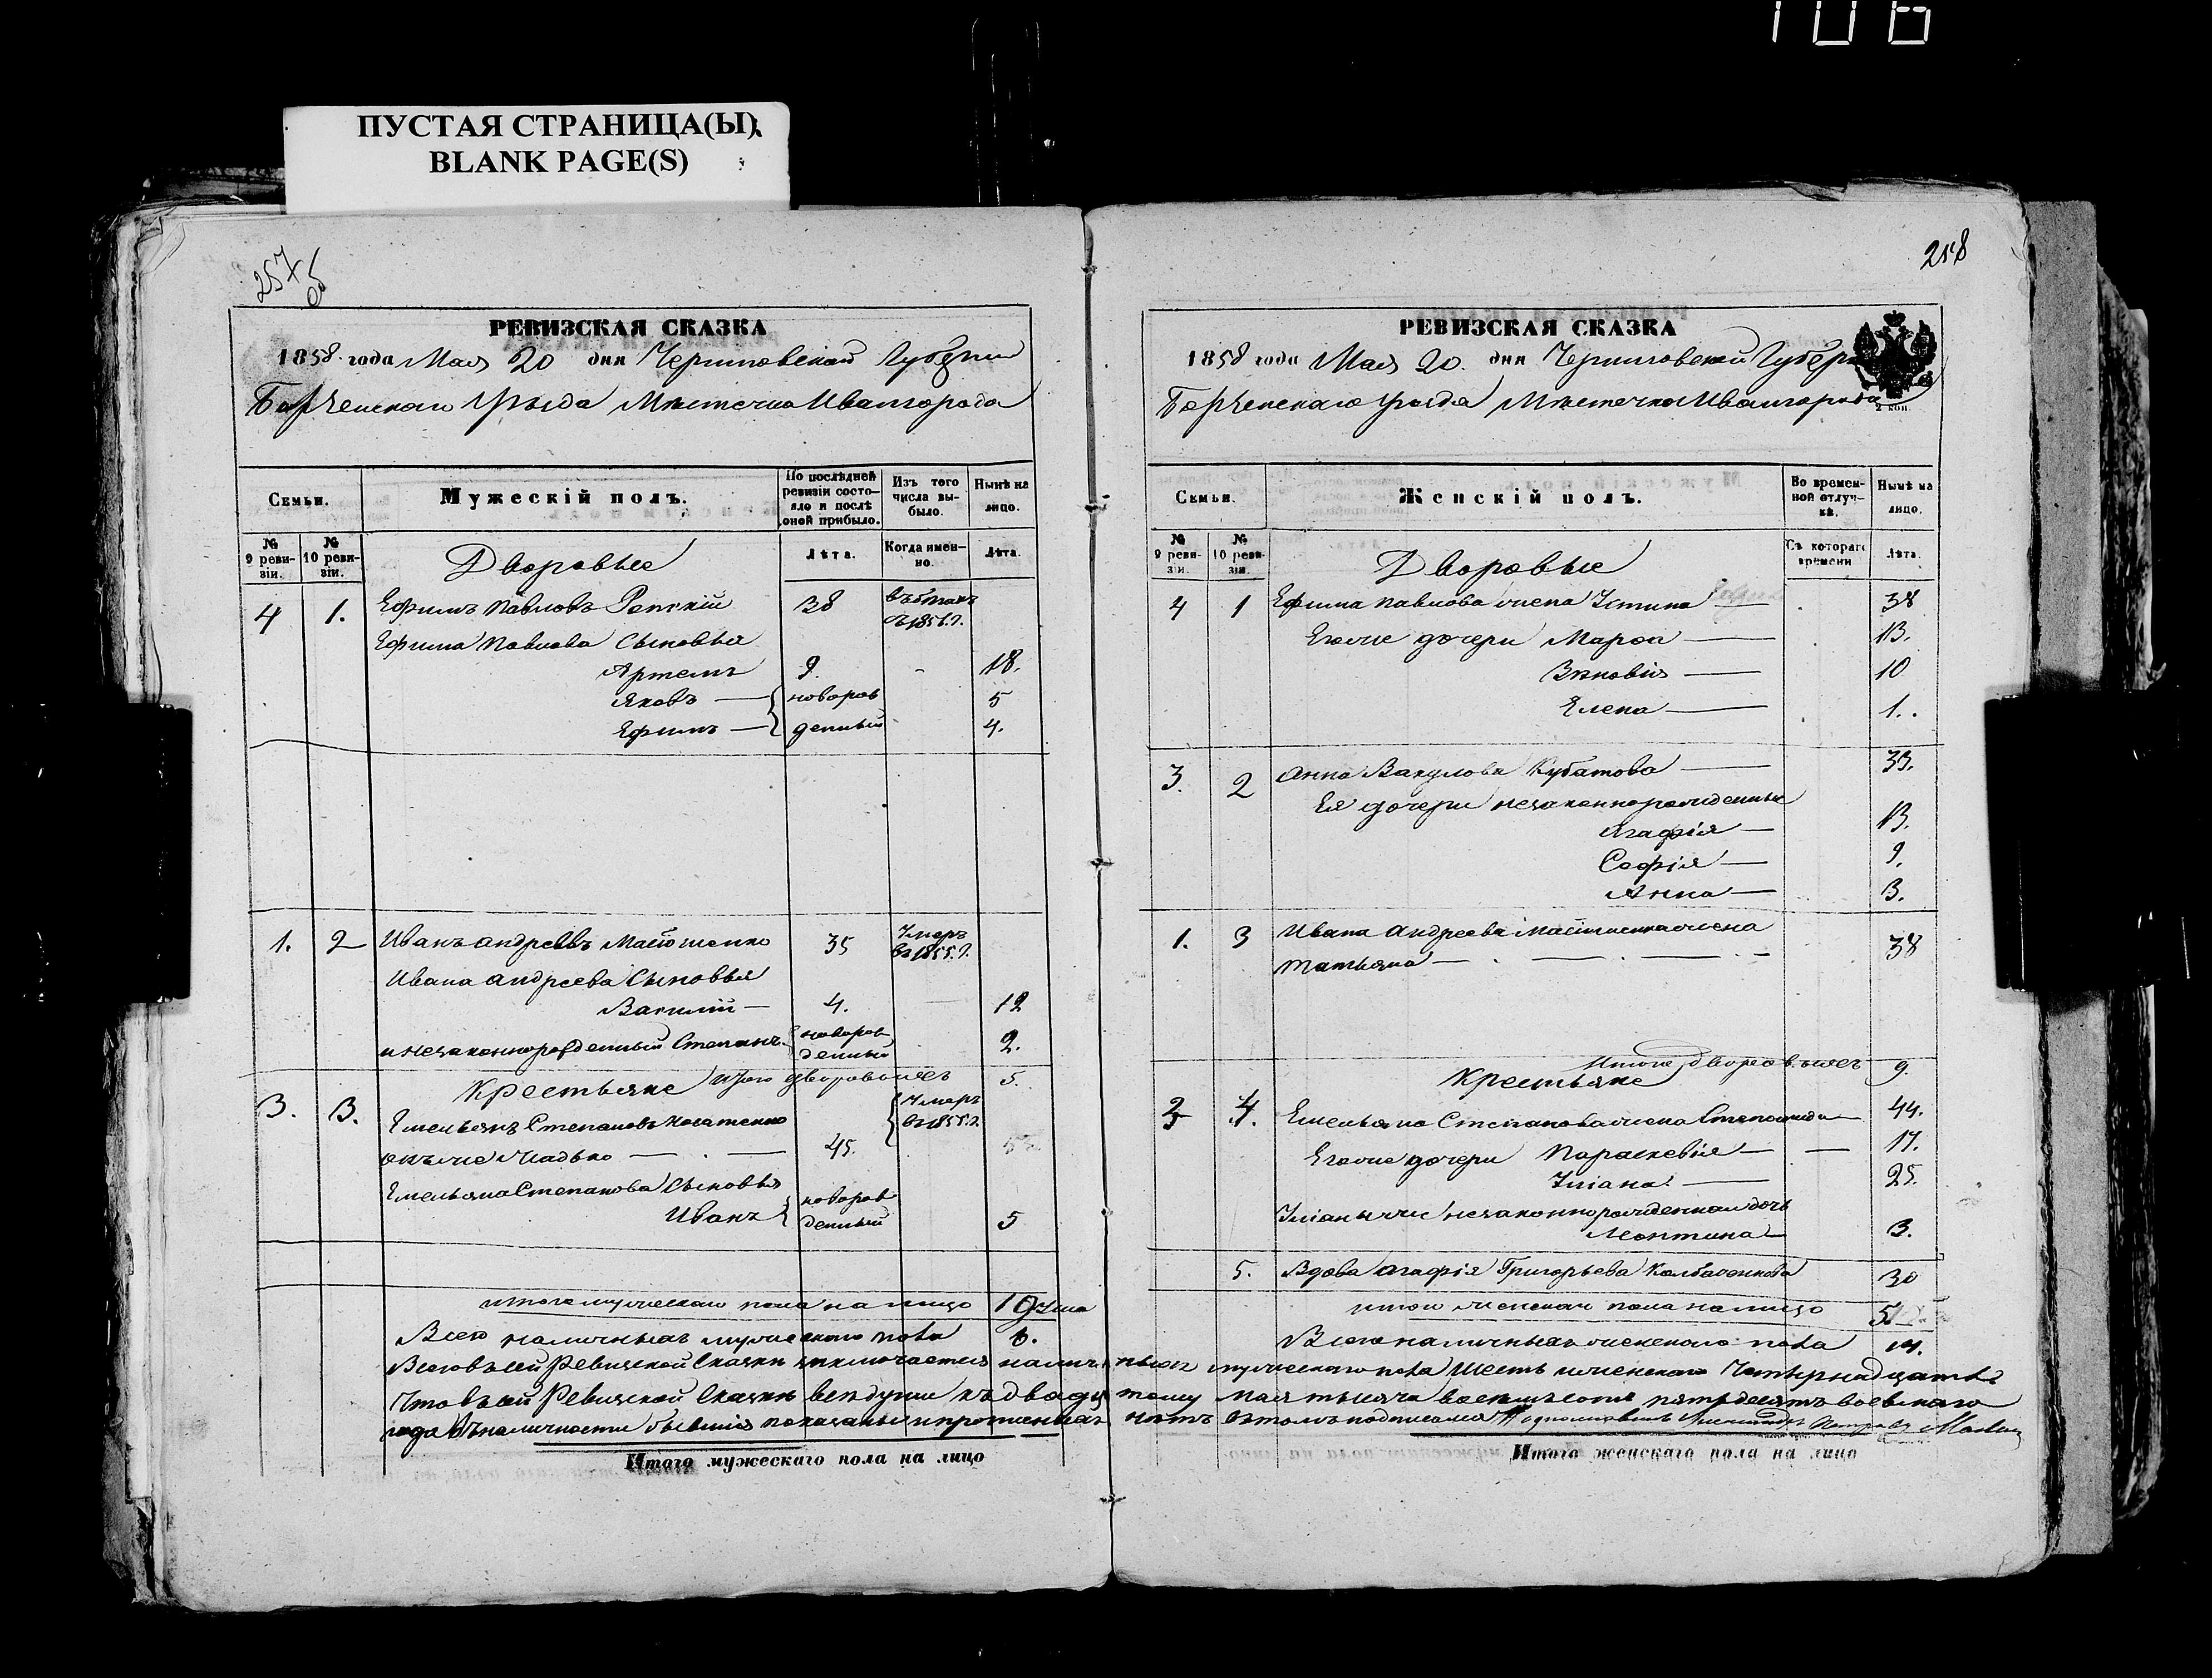 106
ПУСТАЯ СТРАНИЦА(Ы)
BLANK PAGE(S)
257
об
РЕВИЗСКАЯ СКАЗКА
1858 года Мая 20 дня Черниговской Губернiи
Борзенскаго Уѣзда Мѣстечка Ивангорода
Семьи.
Мужескiй полъ.
По послѣдней ревизiи состояло и послѣ оной прибыло.
Изъ того числа выбыло.
Нынѣ на лицо.
№ 9 ревизiи.
№ 10 ревизiи.
Дворовые
Лѣта.
Когда именно.
Лѣта.
4 1. Ефимъ Павловъ 38 въ бѣгахъ съ 1856.г.
Ефима Павлова Сыновья
Артемъ 9. - 18.
Яковъ — новорож 5
Ефимъ — денный 4.
1. 2 Иванъ Андреевъ 35 Умеръ въ 1855.г.
Ивана Андреева Сыновья
Василiй — 4. — 12
и незаконнорожденный Степанъ новорожденный 2.
Итого дворовыхъ 5.
Крестьяне
3. 3. Емельянъ Степановъ Умеръ въ 1855.г.
онъ же — . — 45.
Емельяна Степанова Сыновья
Иванъ новорожденный 5
итого мужескаго пола на лицо 1 душа
Всего наличныхъ мужескаго пола 6.
Итого мужескаго пола на лицо
258
РЕВИЗСКАЯ СКАЗКА
1858 года Мая 20. дня Черниговской Губернiи
Борзенскаго Уѣзда Мѣстечка Ивангорода
2 коп
Семьи.
Женскiй полъ.
Во временной отлучкѣ.
Нынѣ на лицо.
№ 9 ревизiи.
№ 10 ревизiи.
Дворовые
Съ котораго времени
Лѣта.
4 1 Ефима Павлова жена Устина — 38
Егоже дочери Марфа — 13.
Зѣновiя — 10
Елена — 1.
3. 2 Анна Вакулова Кубатова — 33.
Ея дочери незаконнорожденные
Агафiя — 13.
Софiя — 9.
Анна — 3.
1. 3 Ивана Андреева жена
Татьяна — . — . — 38
Итого дворовыхъ 9.
Крестьяне
2 4. Емельяна Степанова жена Степанида — 44.
Егоже дочери Параскевiя — — 17.
Улiана. — 25.
Улiаны незаконнорожденная дочь
3.
5. Вдова Агафiя Григорьева 30
итого женскаго пола на лицо 5
Всего наличныхъ женскаго пола 14.
Всего въ сей Ревизской Сказкѣ заключается наличныхъ мужескаго пола Шесть и женскаго Четырнадцать
Что въ сей Ревизской Сказкѣ все души къ двадцатому Мая тысяча восемьсотъ пятьдесятъ восьмаго
года въ наличности бывшiя показаны и прописныхъ нѣтъ въ томъ подписался
Итого женскаго пола на лицо